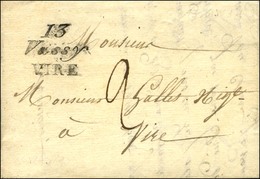 13
Vassy
VIRE
Monsieur
Monsieur Hallet Nég.t
2
à
Vire